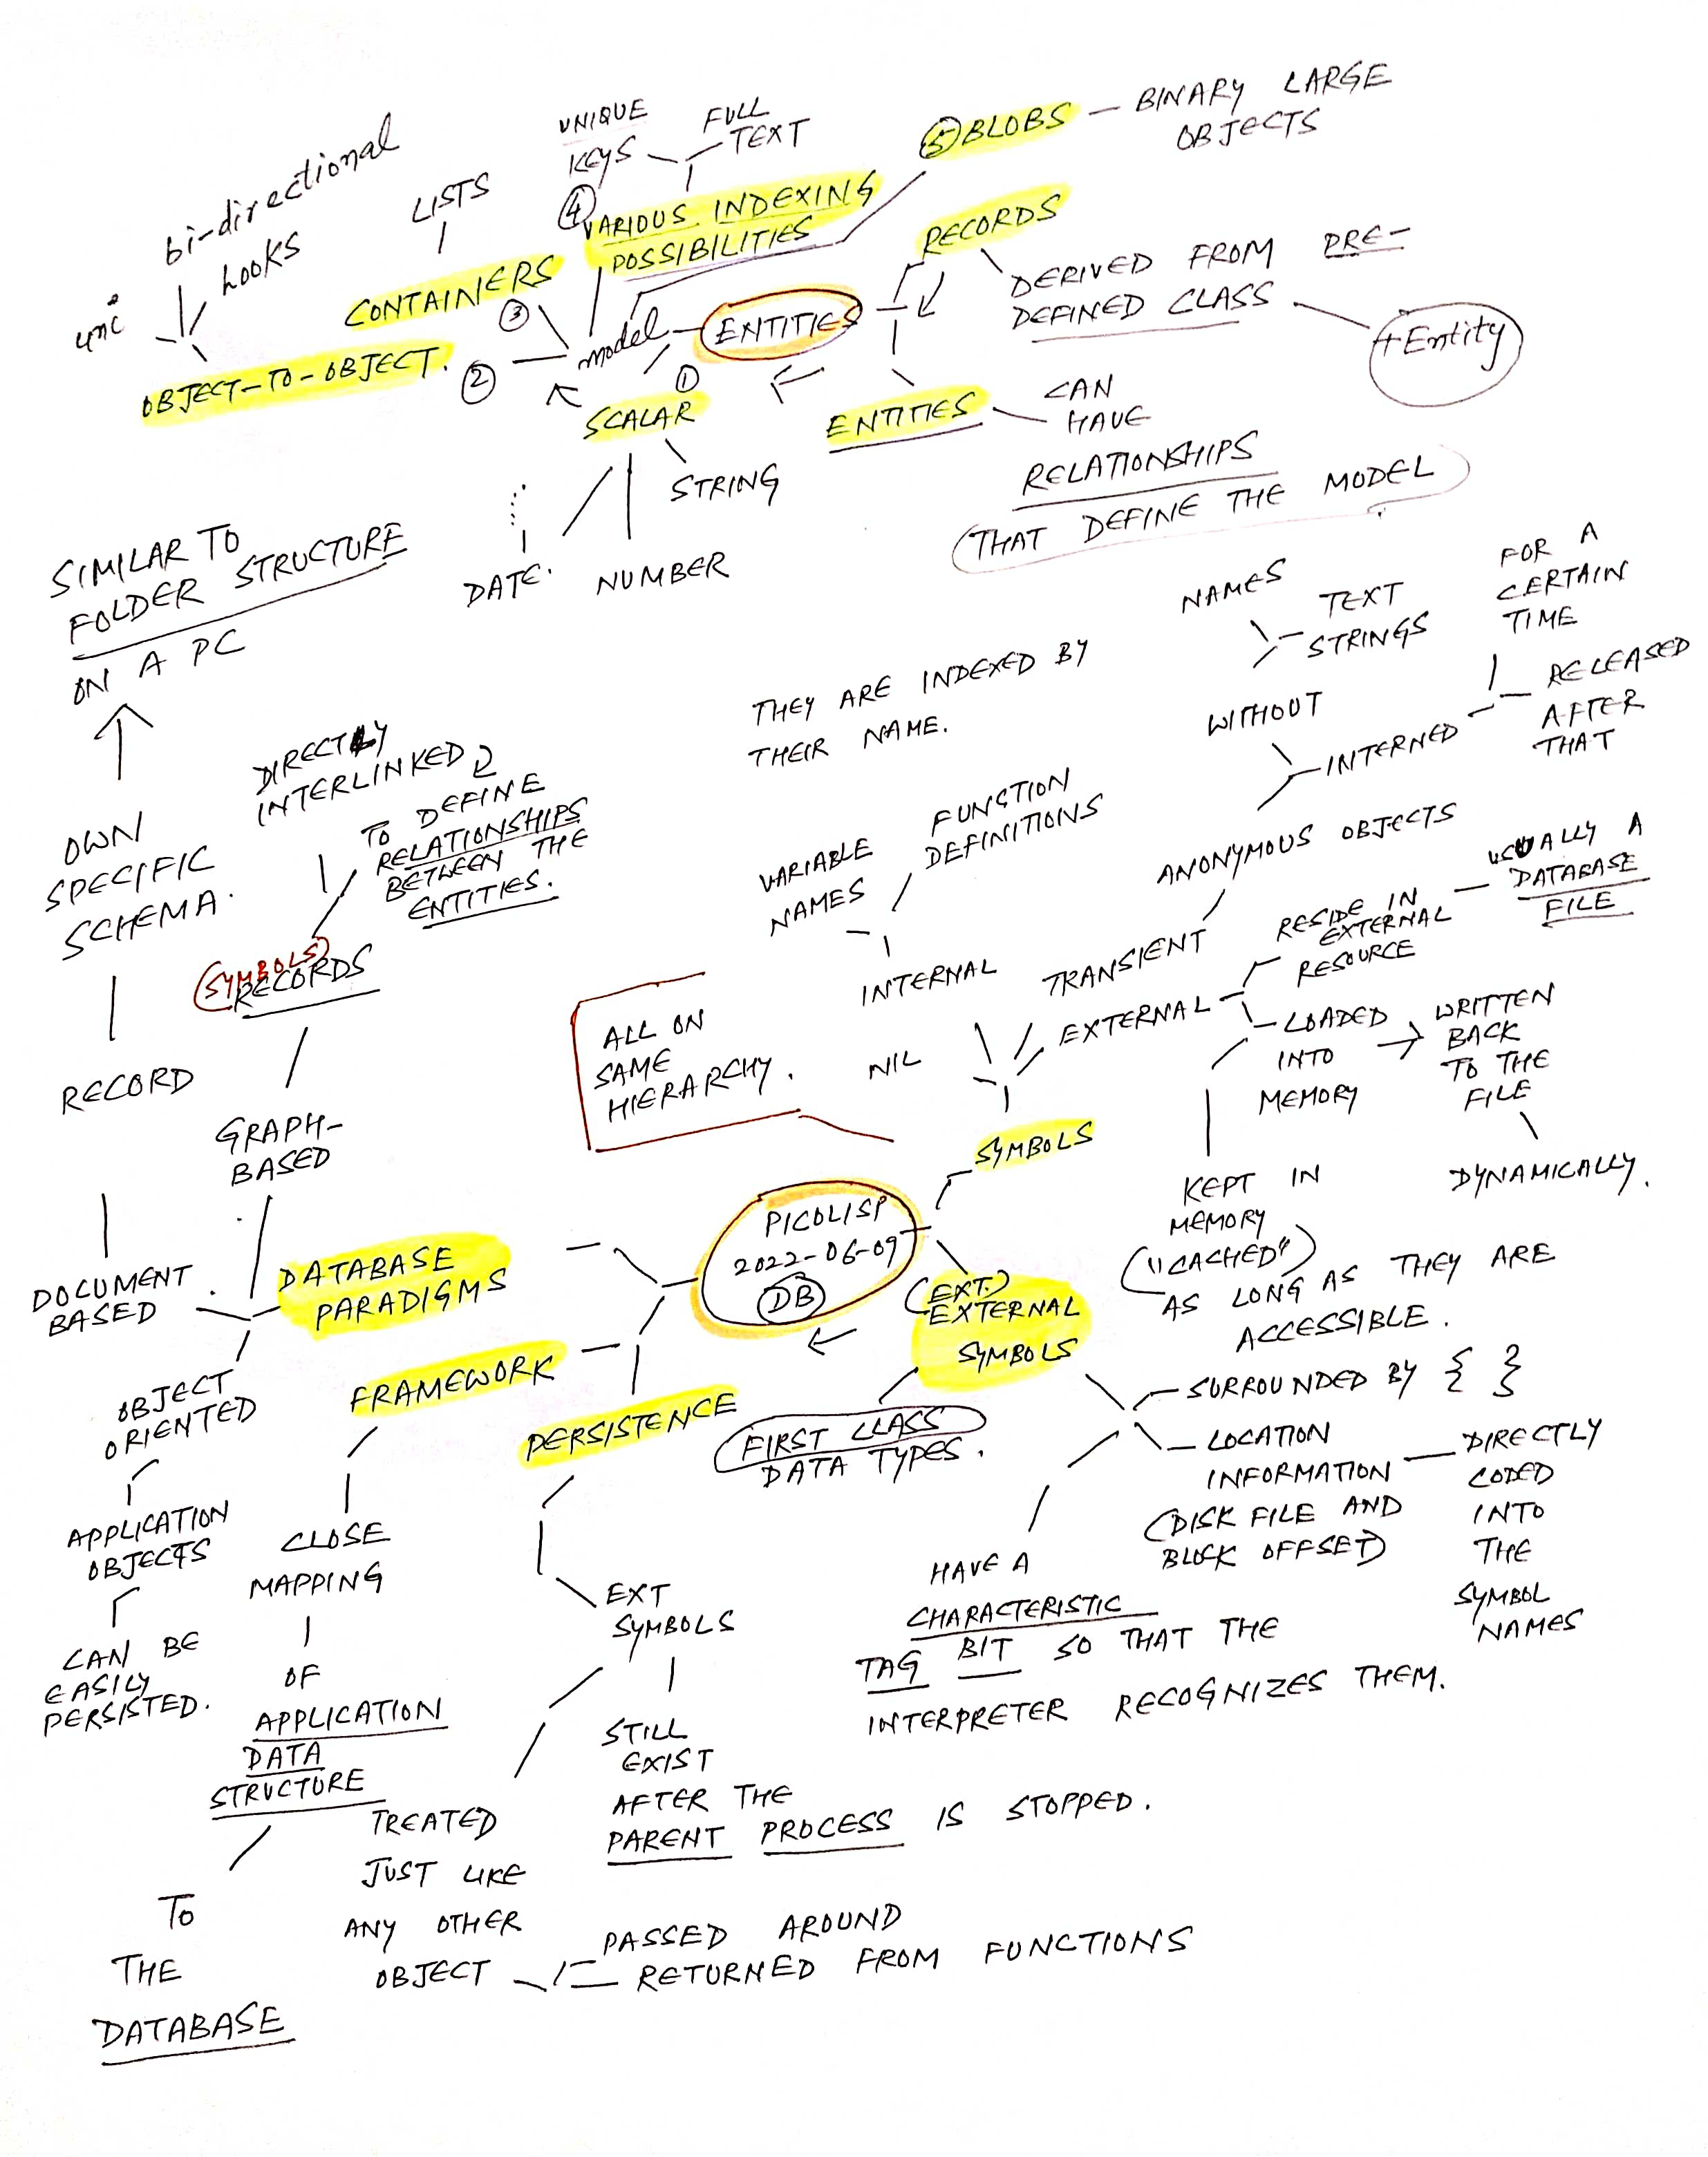 bi-directional
Looks
uni
OBJECT-TO-OBJECT.
②
LISTS
CONTAINERS
③
UNIQUE
KEYS
FULL
TEXT
④
VARIOUS INDEXING
POSSIBILITIES
⑤ BLOBS — BINARY LARGE
OBJECTS
model
ENTITIES
①
SCALAR
STRING
NUMBER
DATE.
RECORDS
DERIVED FROM PRE-
DEFINED CLASS
+Entity
ENTITIES
CAN
HAVE
RELATIONSHIPS
(THAT DEFINE THE MODEL)
SIMILAR TO
FOLDER STRUCTURE
ON A PC
OWN
SPECIFIC
SCHEMA.
RECORD
DOCUMENT
BASED
DIRECTLY
INTERLINKED
TO DEFINE
RELATIONSHIPS
BETWEEN THE
ENTITIES.
(SYMBOLS)
RECORDS
GRAPH-
BASED
DATABASE
PARADIGMS
OBJECT
ORIENTED
APPLICATION
OBJECTS
CAN BE
EASILY
PERSISTED.
THEY ARE INDEXED BY
THEIR NAME.
VARIABLE
NAMES
FUNCTION
DEFINITIONS
INTERNAL
NAMES
TEXT
STRINGS
WITHOUT
INTERNED
FOR A
CERTAIN
TIME
RELEASED
AFTER
THAT
ANONYMOUS OBJECTS
TRANSIENT
EXTERNAL
RESIDE IN
EXTERNAL
RESOURCE
USUALLY A
DATABASE
FILE
LOADED
INTO
MEMORY
WRITTEN
BACK
TO THE
FILE
DYNAMICALLY.
KEPT IN
MEMORY
("CACHED")
AS LONG AS THEY ARE
ACCESSIBLE.
NIL
ALL ON
SAME
HIERARCHY.
SYMBOLS
PICOLISP
2022-06-09
DB
(EXT.)
EXTERNAL
SYMBOLS
FIRST CLASS
DATA TYPES.
SURROUNDED BY { }
LOCATION
INFORMATION
(DISK FILE AND
BLOCK OFFSET)
DIRECTLY
CODED
INTO
THE
SYMBOL
NAMES
HAVE A
CHARACTERISTIC
TAG BIT SO THAT THE
INTERPRETER RECOGNIZES THEM.
FRAMEWORK
CLOSE
MAPPING
OF
APPLICATION
DATA
STRUCTURE
TO
THE
DATABASE
PERSISTENCE
EXT
SYMBOLS
STILL
EXIST
AFTER THE
PARENT PROCESS IS STOPPED.
TREATED
JUST LIKE
ANY OTHER
OBJECT
PASSED AROUND
RETURNED FROM FUNCTIONS